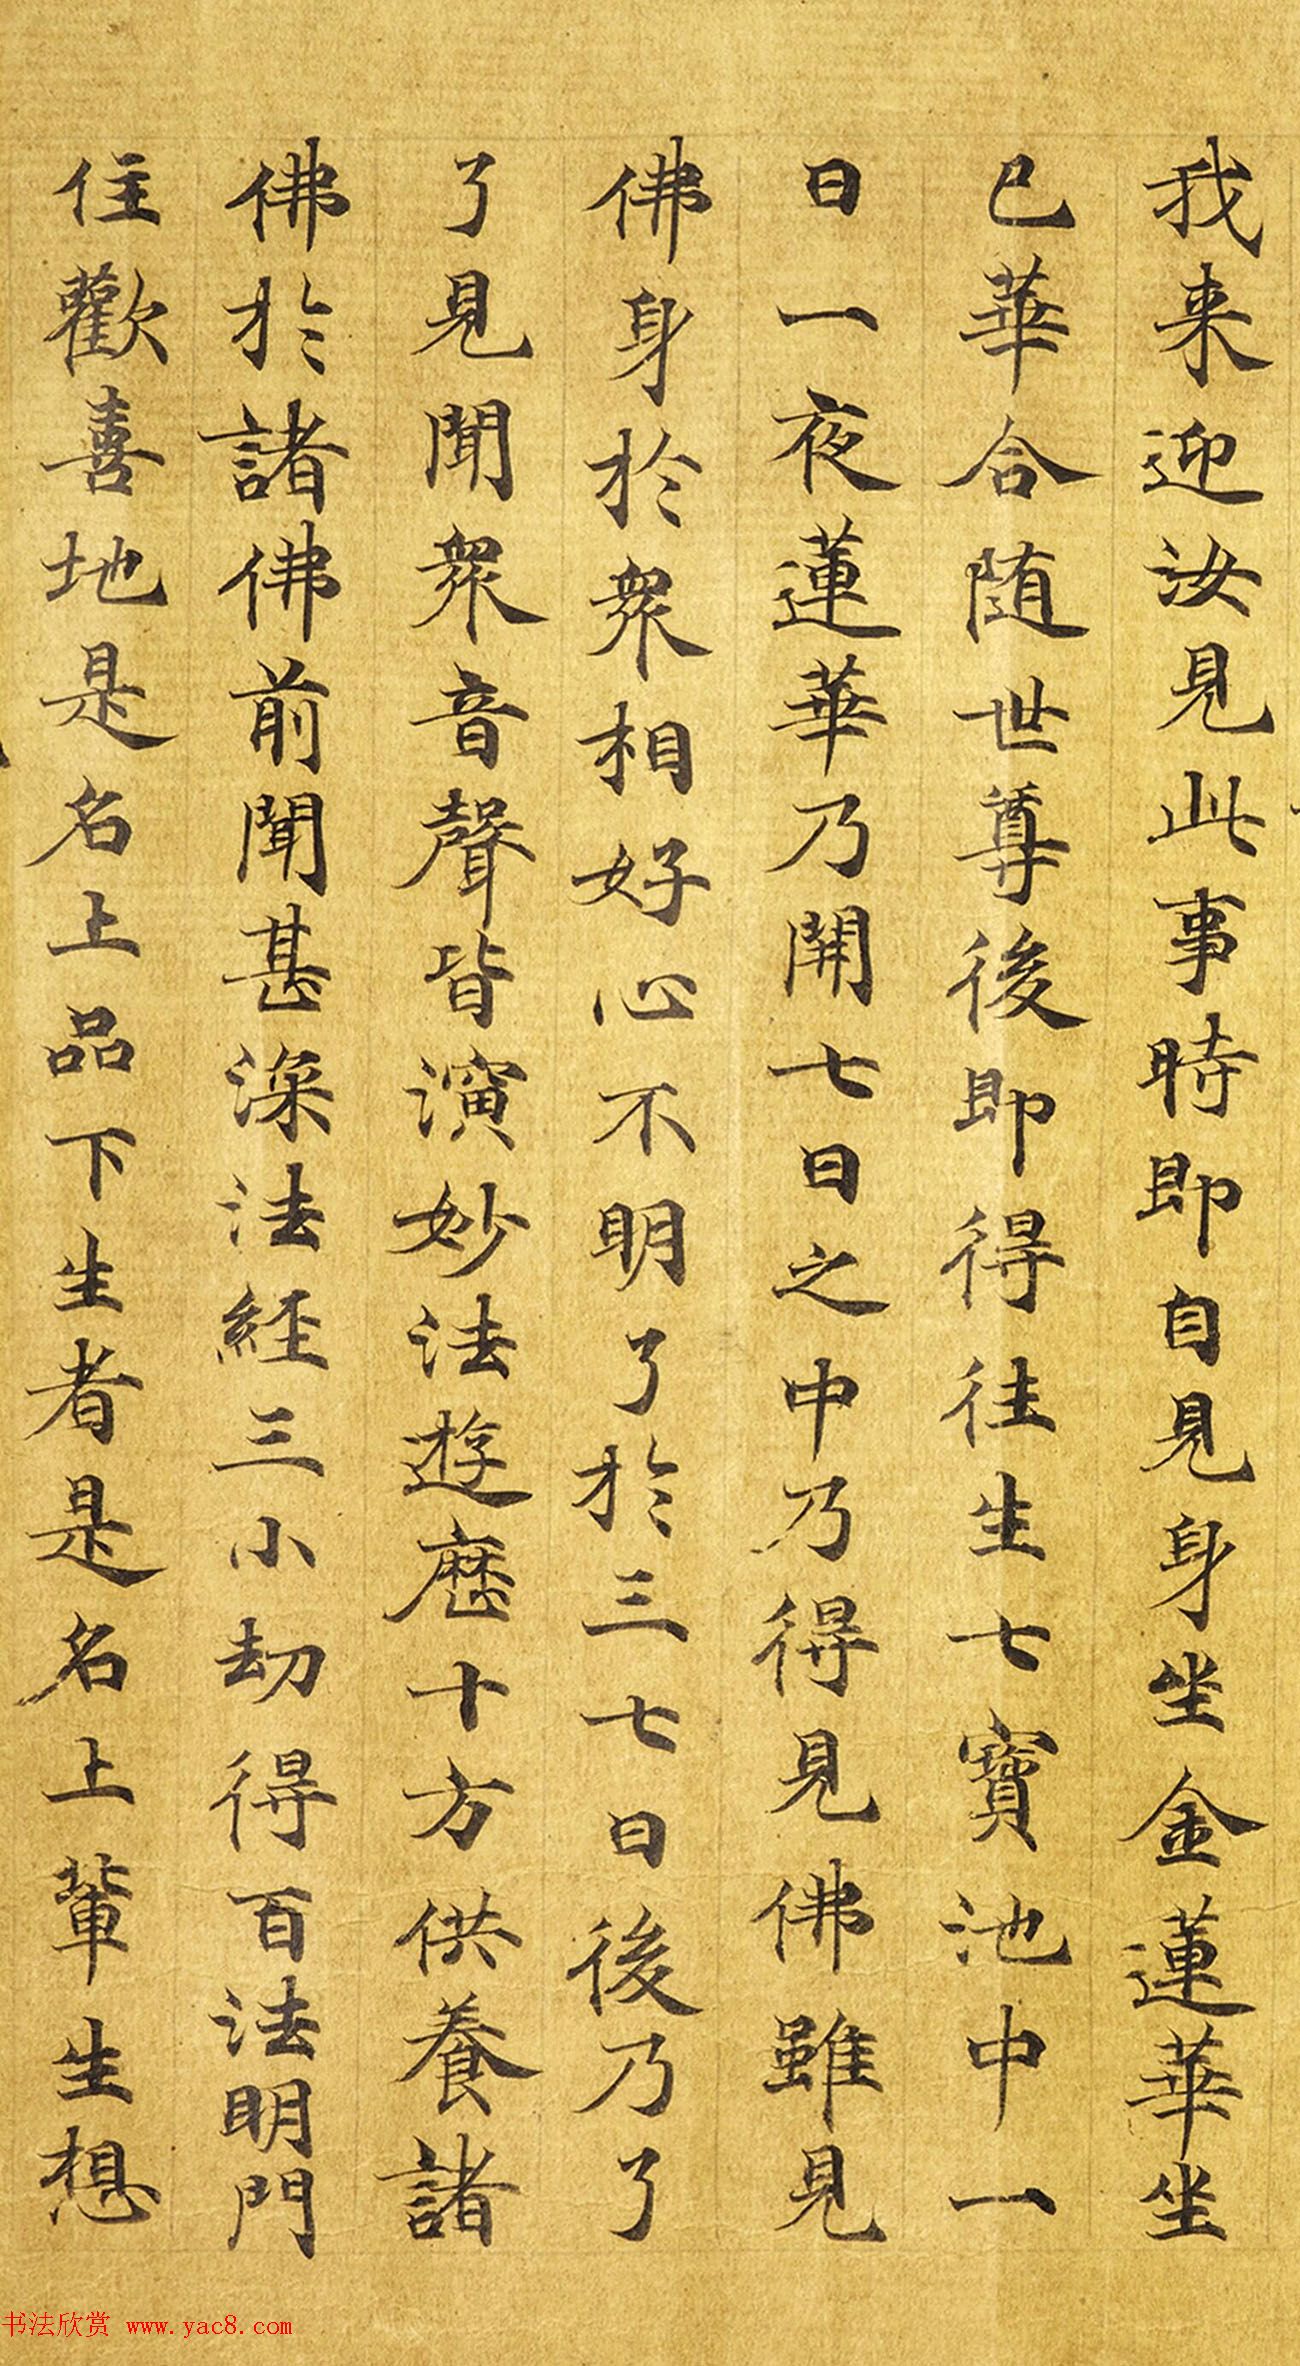 我来迎汝見此事時即自見身坐金蓮華坐
已華合随世尊後即得往生七寶池中一
日一夜蓮華乃開七日之中乃得見佛雖見
佛身於衆相好心不明了於三七日後乃了
了見聞衆音聲皆演妙法遊歷十方供養諸
佛於諸佛前聞甚深法經三小劫得百法明門
住歡喜地是名上品下生者是名上輩生想
书法欣赏 www.yac8.com